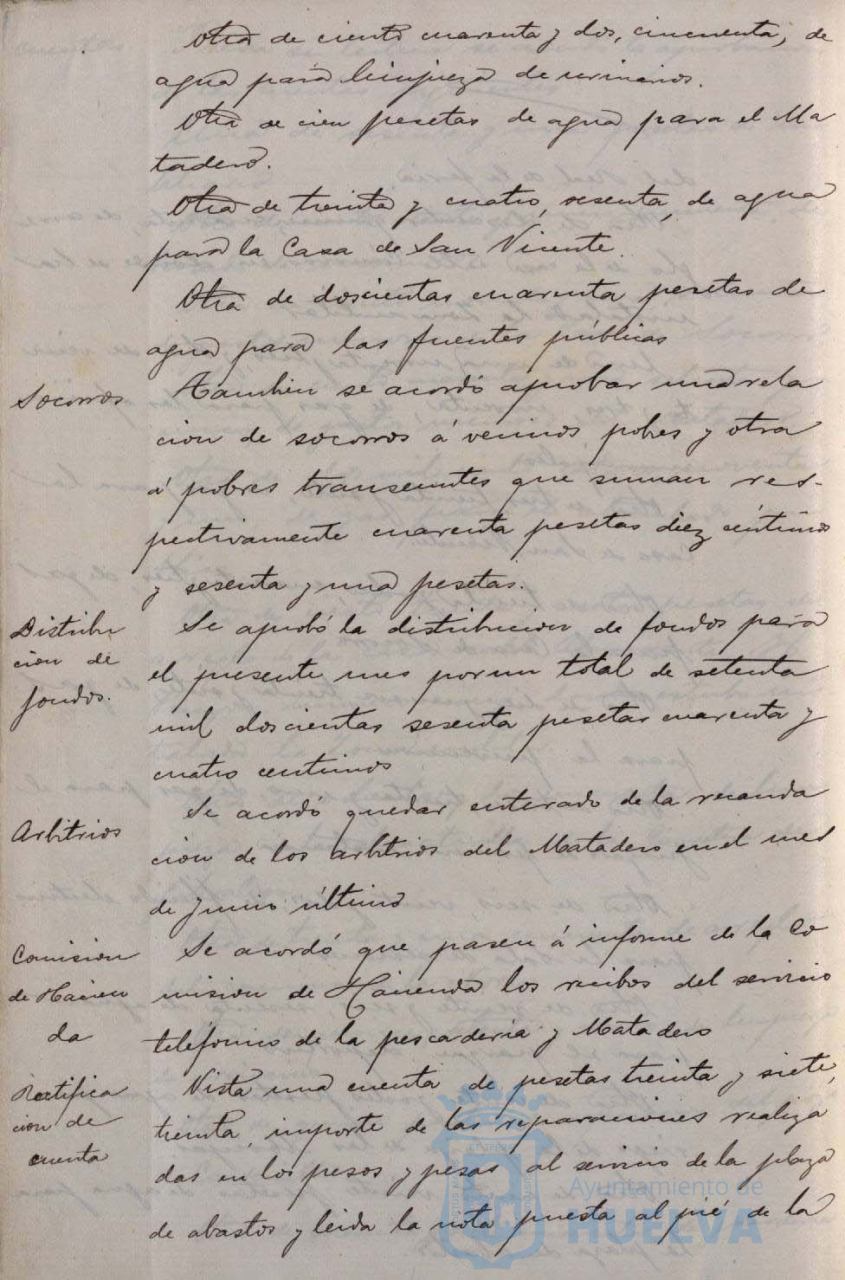 Otra de ciento cuarenta y dos, cincuenta, de
agua para limpieza de urinarios.
Otra de cien pesetas de agua para el Ma
tadero.
Otra de treinta y cuatro, sesenta, de agua
para la Casa de San Vicente.
Otra de doscientas cuarenta pesetas de
agua para las fuentes públicas
Socorros
Tambien se acordó aprobar una rela
cion de socorros á vecinos pobres y otra
á pobres transeuntes que suman res-
pectivamente cuarenta pesetas diez céntimos
y sesenta y una pesetas.
Distribu
cion de
fondos.
Se aprobó la distribucion de fondos para
el presente mes por un total de setenta
mil doscientas sesenta pesetas cuarenta y
cuatro centimos
Arbitrios
Se acordó quedar enterado de la recauda
cion de los arbitrios del Matadero en el mes
de junio último
Comision
de Hacien
da
Se acordó que pasen á informe de la Co
mision de Hacienda los recibos del servicio
telefónico de la pescadería y Matadero
Rectifica
cion de
cuenta
Vista una cuenta de pesetas treinta y siete,
treinta, importe de las reparaciones realiza
das en los pesos y pesas al servicio de la plaza
de abastos y leida la nota puesta al pié de la
Ayuntamiento de
HUELVA